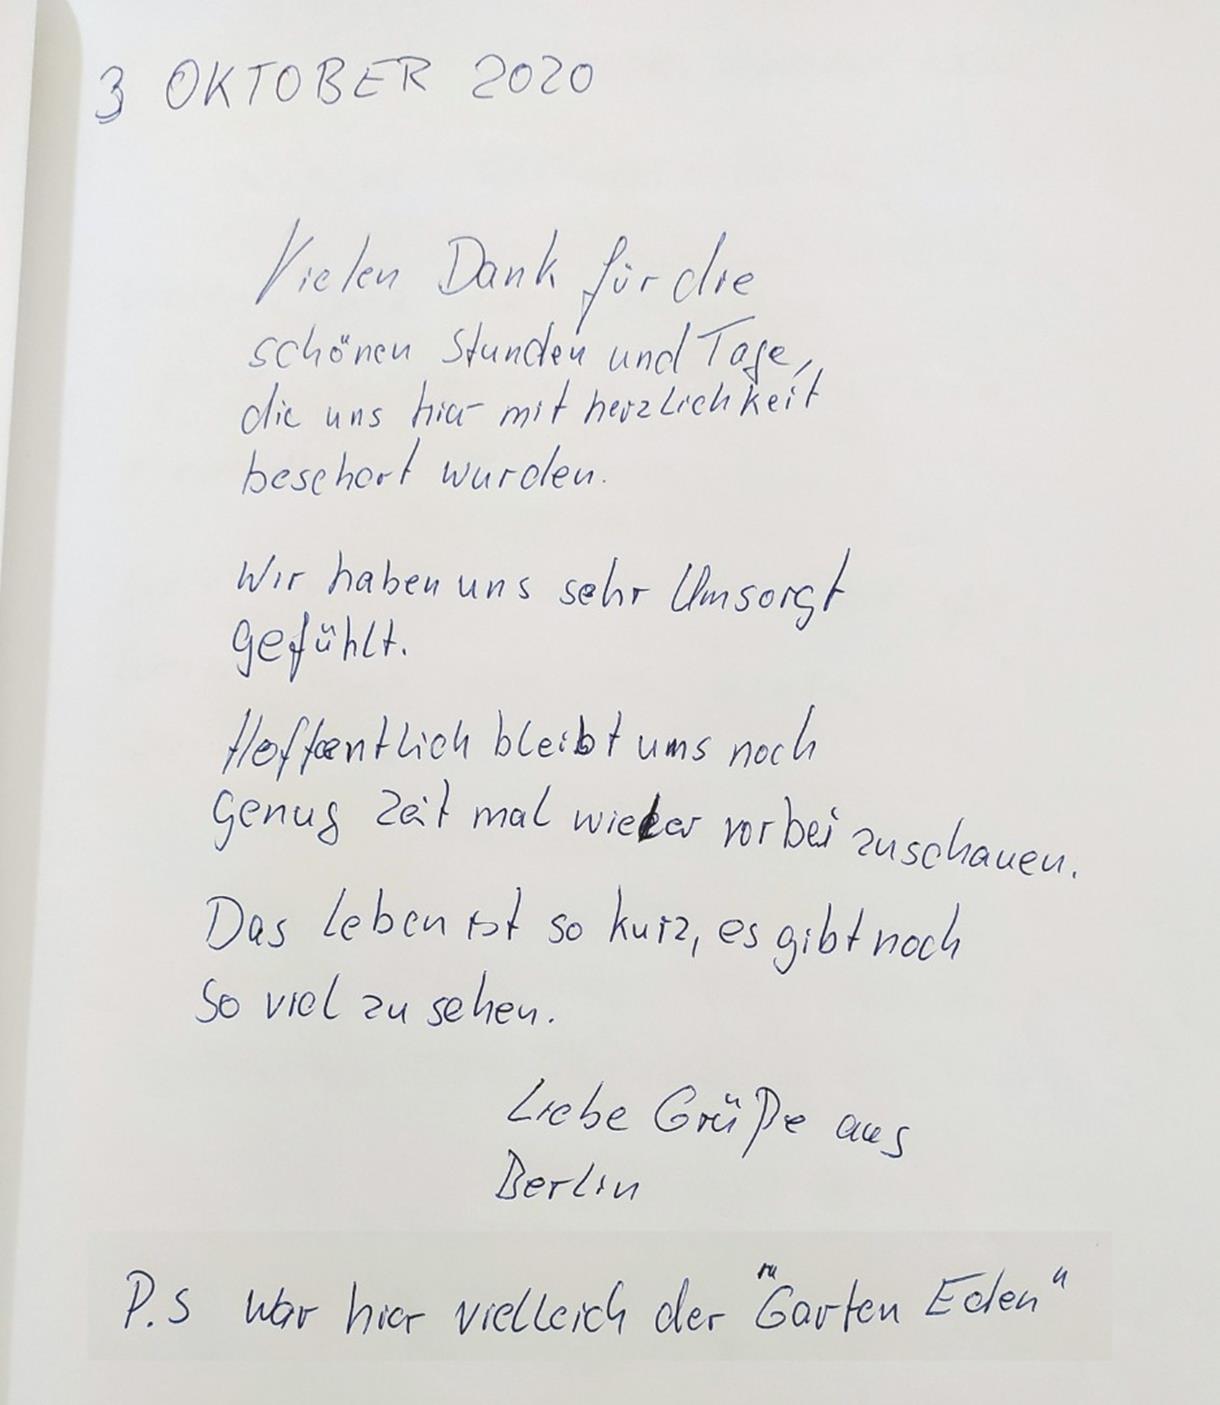 3 OKTOBER 2020
Vielen Dank für die
schönen Stunden und Tage,
die uns hier mit herzlichkeit
beschert wurden.
Wir haben uns sehr Umsorgt
gefühlt.
Hoffentlich bleibt uns noch
genug Zeit mal wieder vorbei zuschauen.
Das Leben ist so kurz, es gibt noch
so viel zu sehen.
Liebe Grüße aus
Berlin
P.S war hier vielleich der "Garten Eden"